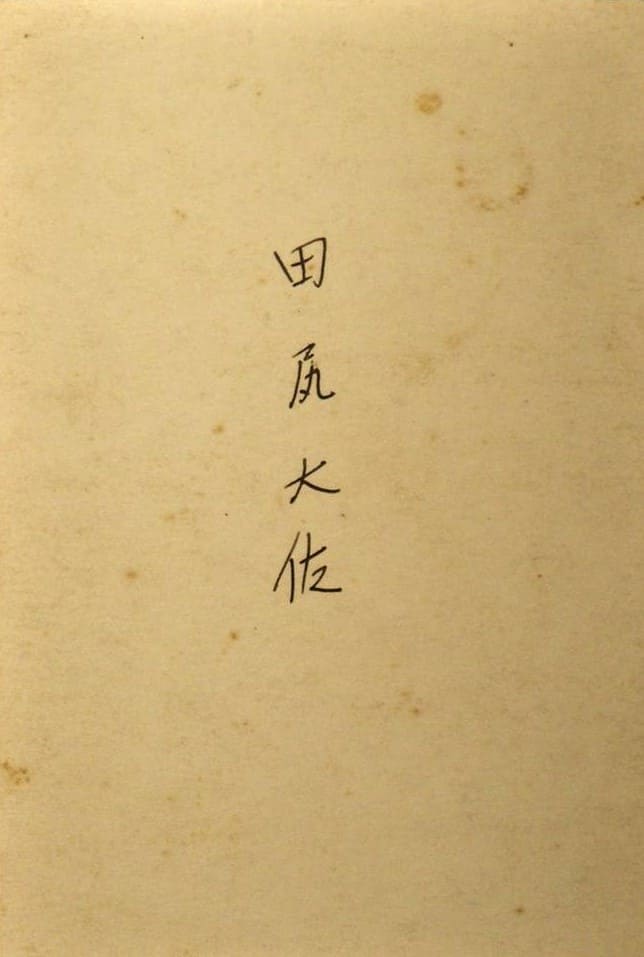 田尻大佐